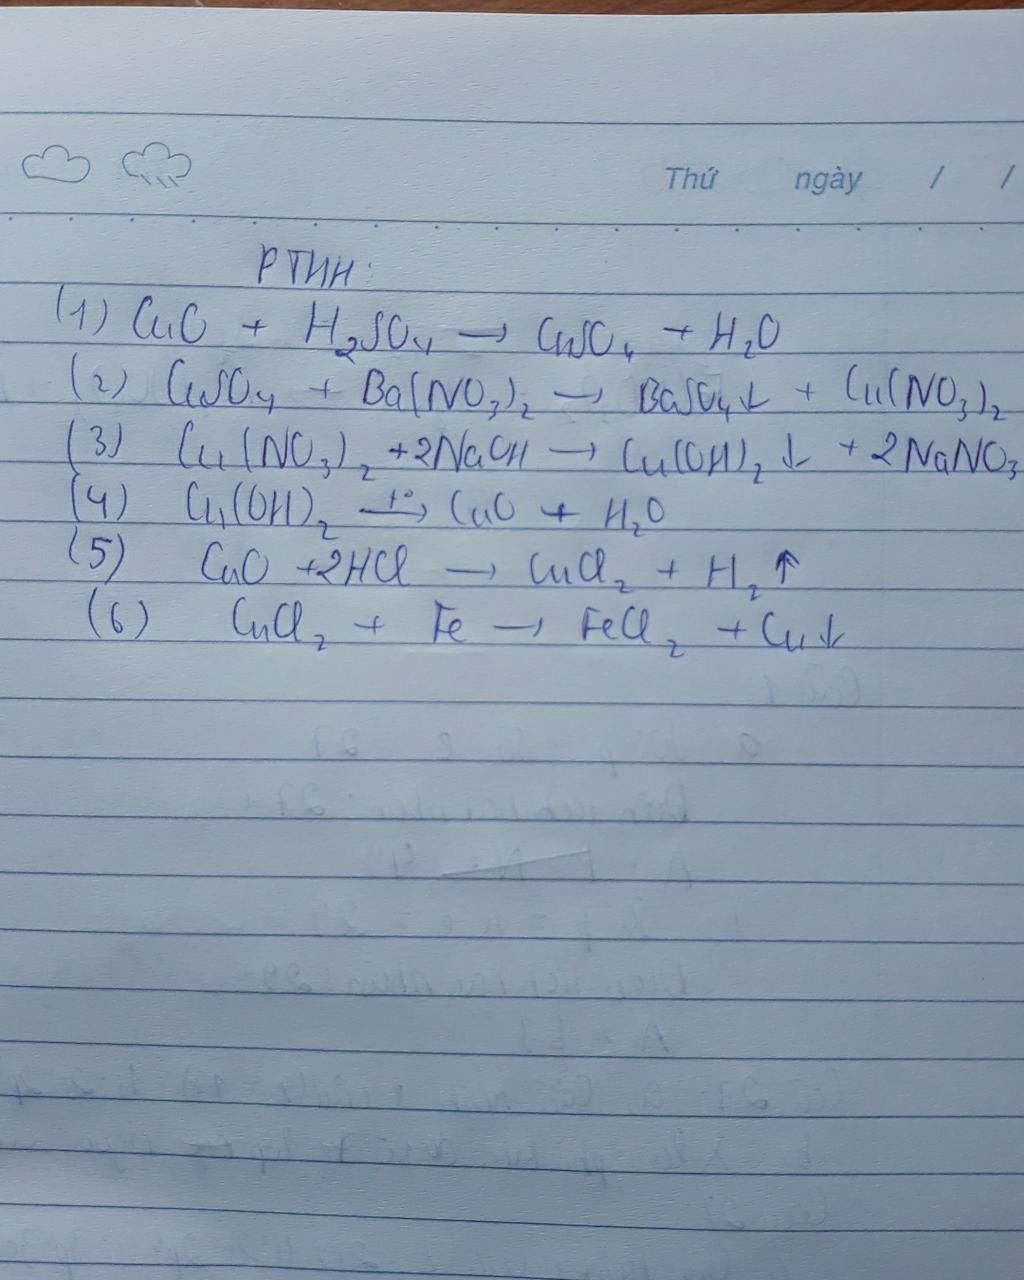 Thứ ngày / /
PTHH:
(1) CuO + H₂SO₄ → CuSO₄ + H₂O
(2) CuSO₄ + Ba(NO₃)₂ → BaSO₄↓ + Cu(NO₃)₂
(3) Cu(NO₃)₂ +2NaOH → Cu(OH)₂ ↓ + 2NaNO₃
(4) Cu(OH)₂ —t°→ CuO + H₂O
(5) CuO +2HCl → CuCl₂ + H₂↑
(6) CuCl₂ + Fe → FeCl₂ + Cu↓